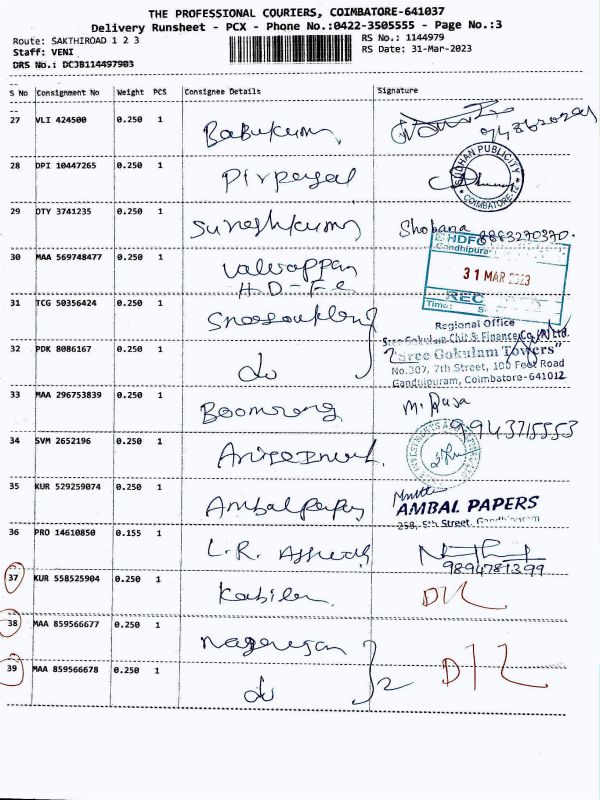 THE PROFESSIONAL COURIERS, COIMBATORE-641037
Delivery Runsheet - PCX - Phone No.:0422-3505555 - Page No.:3
Route: SAKTHIROAD 1 2 3
RS No.: 1144979
Staff: VENI
RS Date: 31-Mar-2023
DRS No.: DCJB114497903
S No Consignment No Weight PCS Consignee Details Signature
27 VLI 424500 0.250 1 Babukumar
28 DPI 10447265 0.250 1
SUDHAN PUBLICITY
COIMBATORE-12
29 DTY 3741235 0.250 1 Sureshkumar Shobana 8883270370.
30 MAA 569748477 0.250 1 Valliappan
H.D-F.C
HDFC
Gandhipura
31 MAR 2023
REC
Time:
31 TCG 50356424 0.250 1
Regional Office
Sree Gokulam Chit & Finance Co.(P) Ltd.
"Sree Gokulam Towers"
No.307, 7th Street, 100 Feet Road
Gandhipuram, Coimbatore-641012
32 PDK 8086167 0.250 1 do 2
33 MAA 296753839 0.250 1 Boomrang M. Raja
9943715553
34 SVM 2652196 0.250 1
35 KUR 529259074 0.250 1 Ambal papers
AMBAL PAPERS
258, 5th Street, Gandhipuram
36 PRO 14610850 0.155 1 L.R.
9894781399
37 KUR 558525904 0.250 1 Kabilan D/L
38 MAA 859566677 0.250 1 Nagarajan
39 MAA 859566678 0.250 1 do 2 D/L